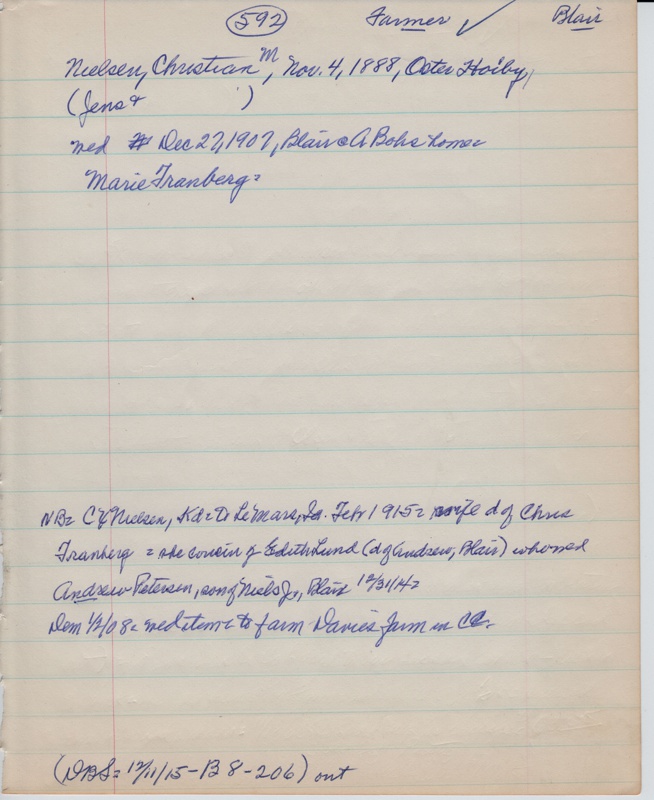 592 Farmer ✓ Blair
Nielsen, Christian M, Nov. 4, 1888, Oster Hoiby,
(Jens & )
wed Dec 27, 1907, Blair @ A Bohs home =
Marie Franberg =
NB = C Nielsen, Kd = to Le Mars, Ia. Feb 1915 = wife d of Chris
Franberg = she cousin of Edith Lund (d of Andrew, Blair) who wed
Andrew Petersen, son of Niels Jr, Blair 12/31/14 =
Dem 1/2/08 = wed item = to farm Davies farm in CC.
(DBS = 12/11/15 - B 8 - 206) out